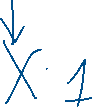 ↓
X · 1